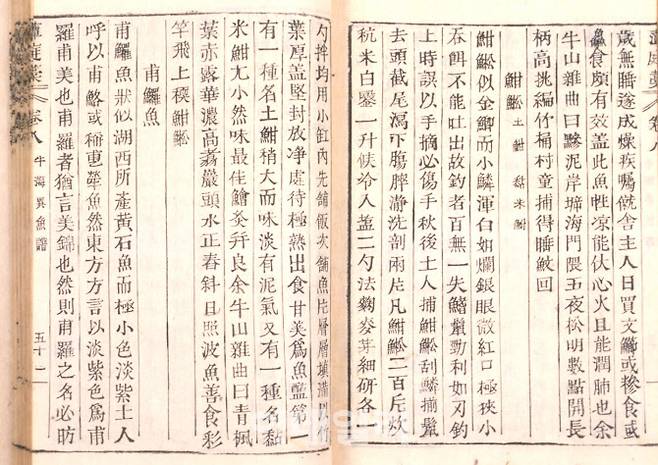 歲無睡遂成燥疾囑僦舍主人日買文鰤或糝食或
鱻食頗有效蓋此魚性凉能伏心火且能潤肺也余
牛山雜曲曰黲泥岸墆海門隈五夜松明數點開長
柄高挑編竹桶村童捕得睡鮫回
魽 土魽 黏米魽
魽似金鯽而小鱗渾白如爛銀眼微紅口極狹小
吞餌不能吐出故釣者百無一失鰭鬣勁利如刃釣
上時誤以手摘必傷手秋後土人捕魽刮鱗揃鬣
去頭截尾瀉下腸胵瀞洗剖兩片凡魽二百斤炊
秔米白鑿一升俟冷入鹽二勺法麴麥芽細硏各
勺拌均用小缸內先舖飯次舖魚片層層塡滿以竹
葉厚蓋堅封放淨處待極熟出食甘美爲魚醢第一
有一種名土魽稍大而味淡有泥氣又有一種名黏
米魽尤小然味最佳鱠炙幷良余牛山雜曲曰靑楓
葉赤露華濃高巖頭水正舂斜日照波魚善食彩
竿飛上魽
甫鱺魚
甫鱺魚狀似湖西所產黃石魚而極小色淡紫土人
呼以甫鮥或稱犂魚然東方方言以淡紫色爲甫
羅甫美也甫羅者猶言美錦也然則甫羅之名必昉
卷八 牛海異魚譜 五十一